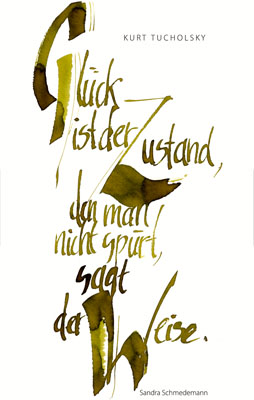 KURT TUCHOLSKY
Glück
ist der Zustand,
den man
nicht spürt,
sagt
der Weise.
Sandra Schmedemann